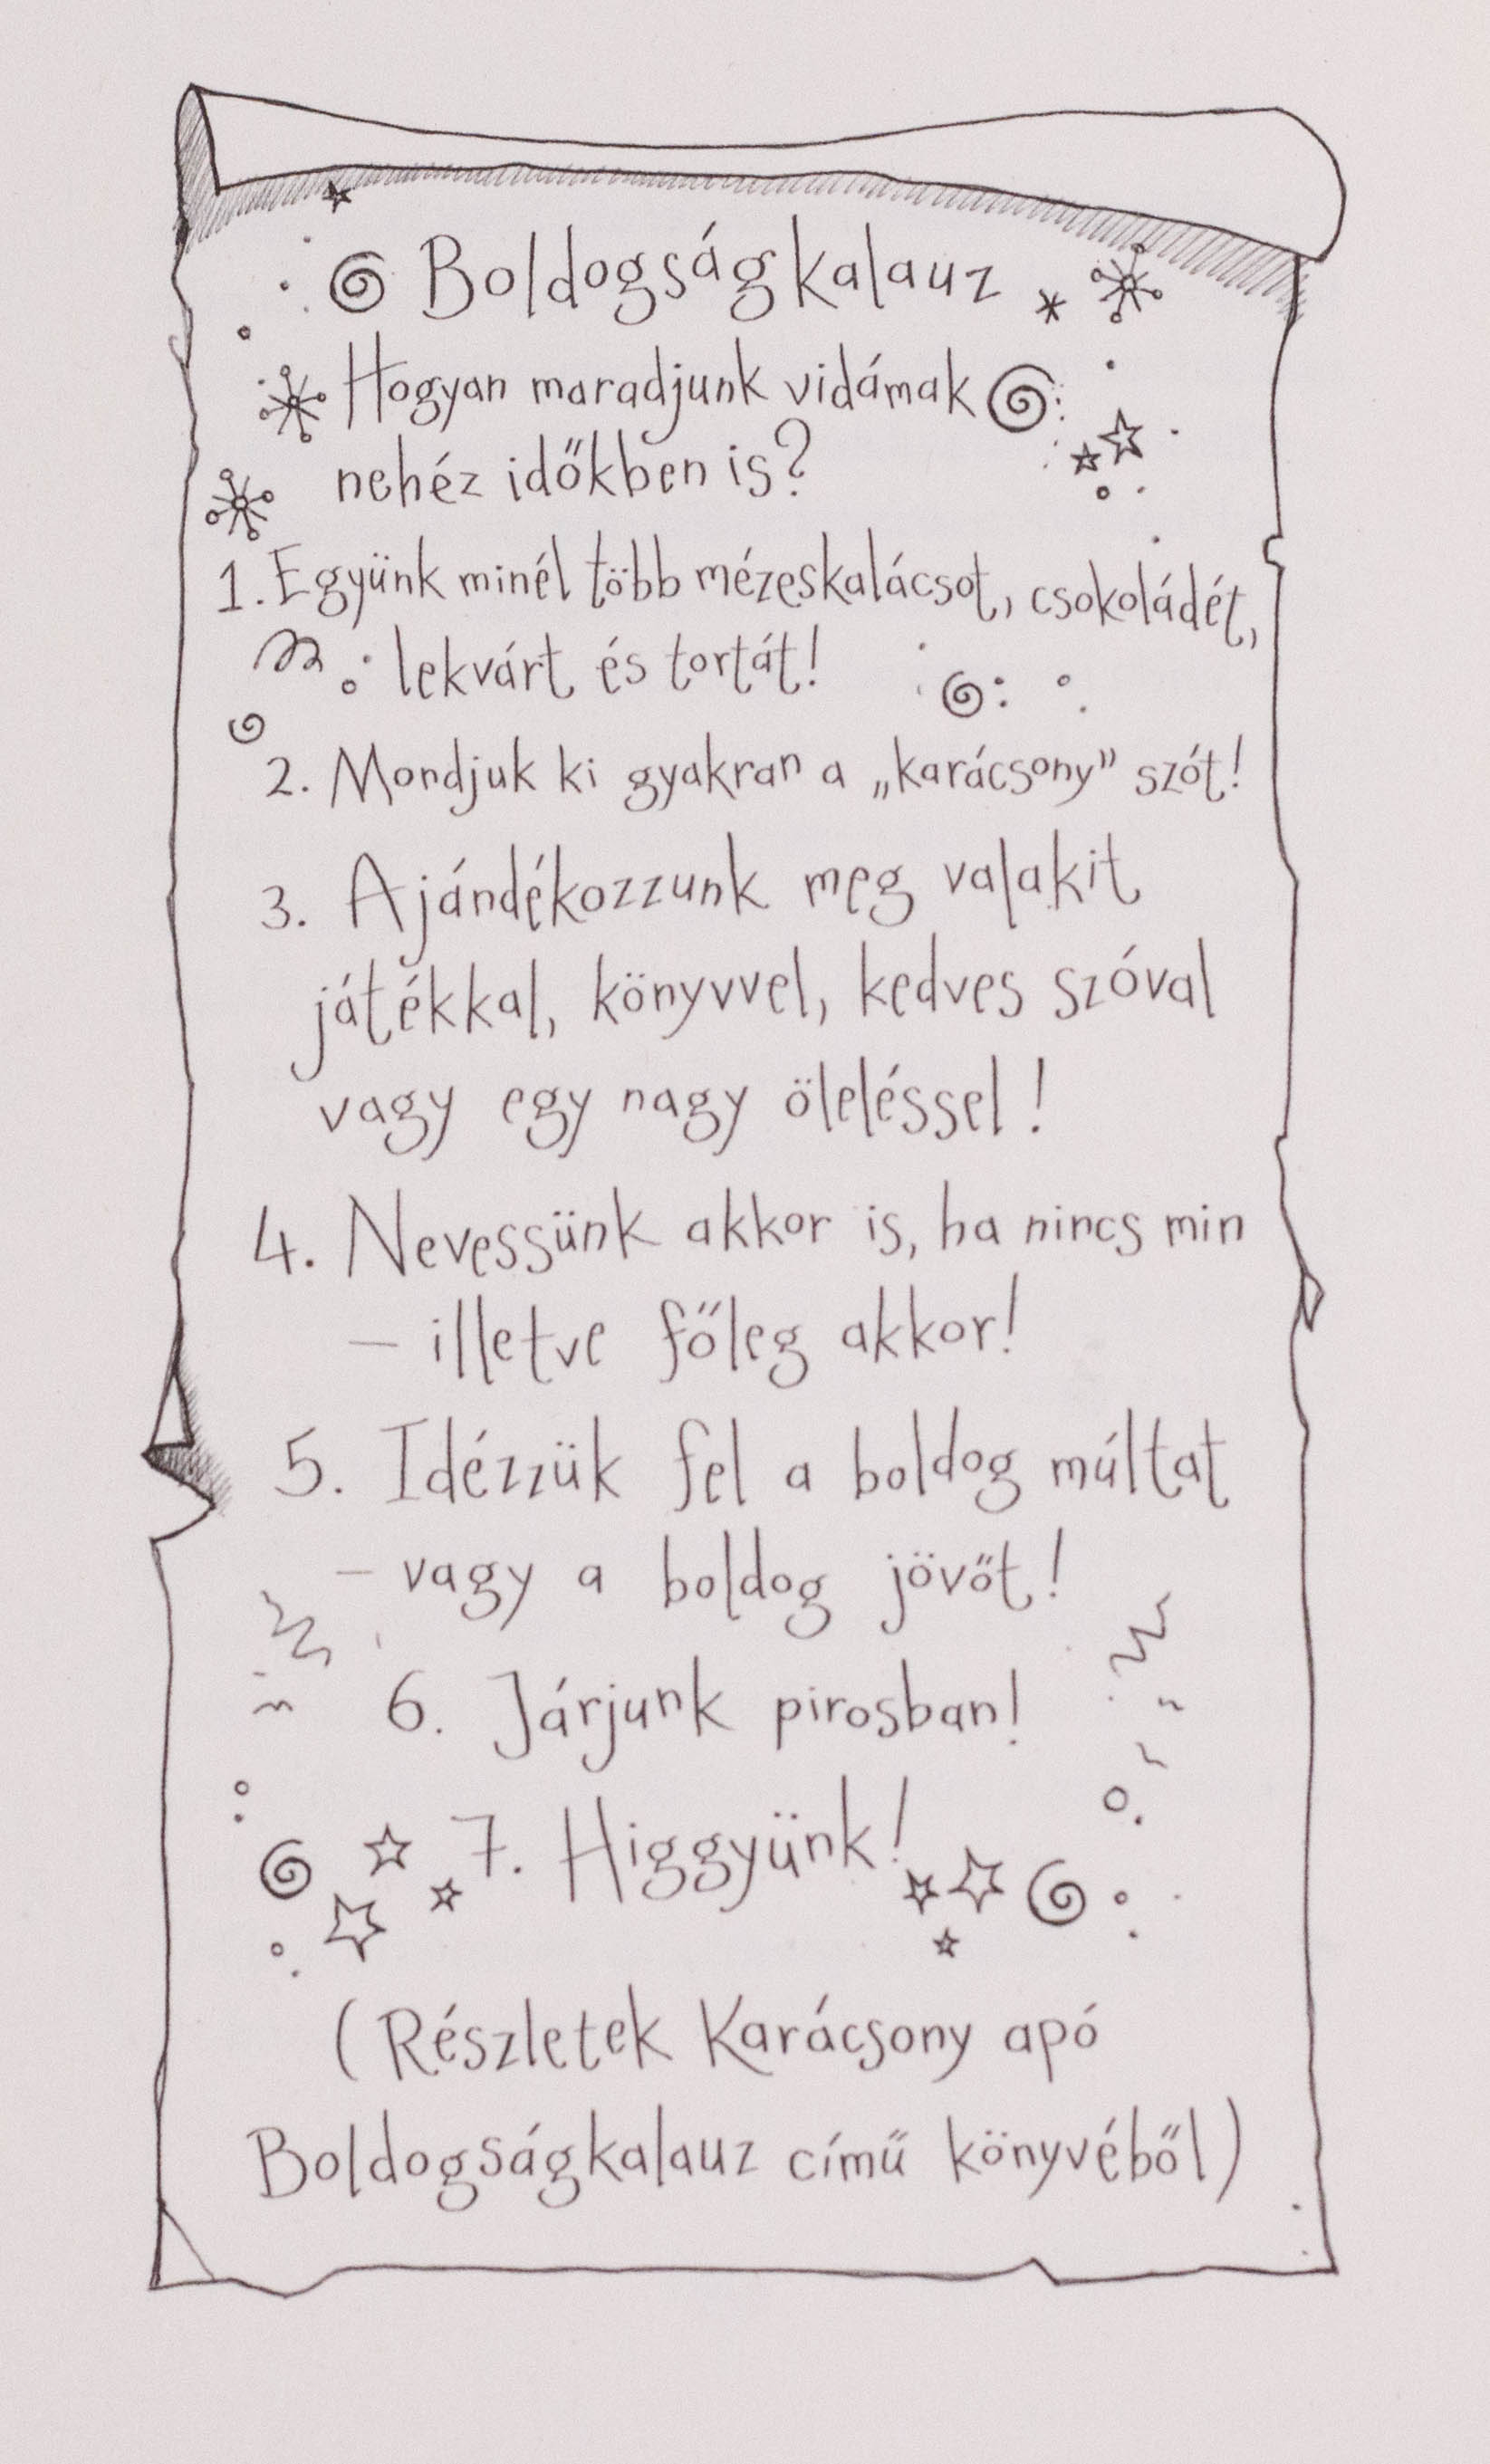 Boldogságkalauz
Hogyan maradjunk vidámak
nehéz időkben is?
1. Együnk minél több mézeskalácsot, csokoládét,
lekvárt és tortát!
2. Mondjuk ki gyakran a „karácsony” szót!
3. Ajándékozzunk meg valakit
játékkal, könyvvel, kedves szóval
vagy egy nagy öleléssel!
4. Nevessünk akkor is, ha nincs min
– illetve főleg akkor!
5. Idézzük fel a boldog múltat
– vagy a boldog jövőt!
6. Járjunk pirosban!
7. Higgyünk!
(Részletek Karácsony apó
Boldogságkalauz című könyvéből)